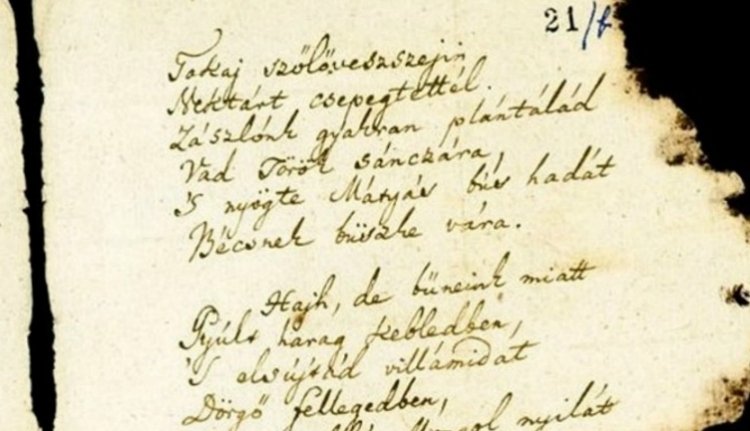 21/f
Tokaj szőlővesszejin
Nektárt csepegtettél.
Zászlónk gyakran plántálád
Vad Török sánczára,
'S nyögte Mátyás bús hadát
Bécsnek büszke vára.
Hajh, de bűneink miatt
Gyúlt harag kebledben,
'S elsújtád villámidat
Dörgő fellegedben,
nyilát